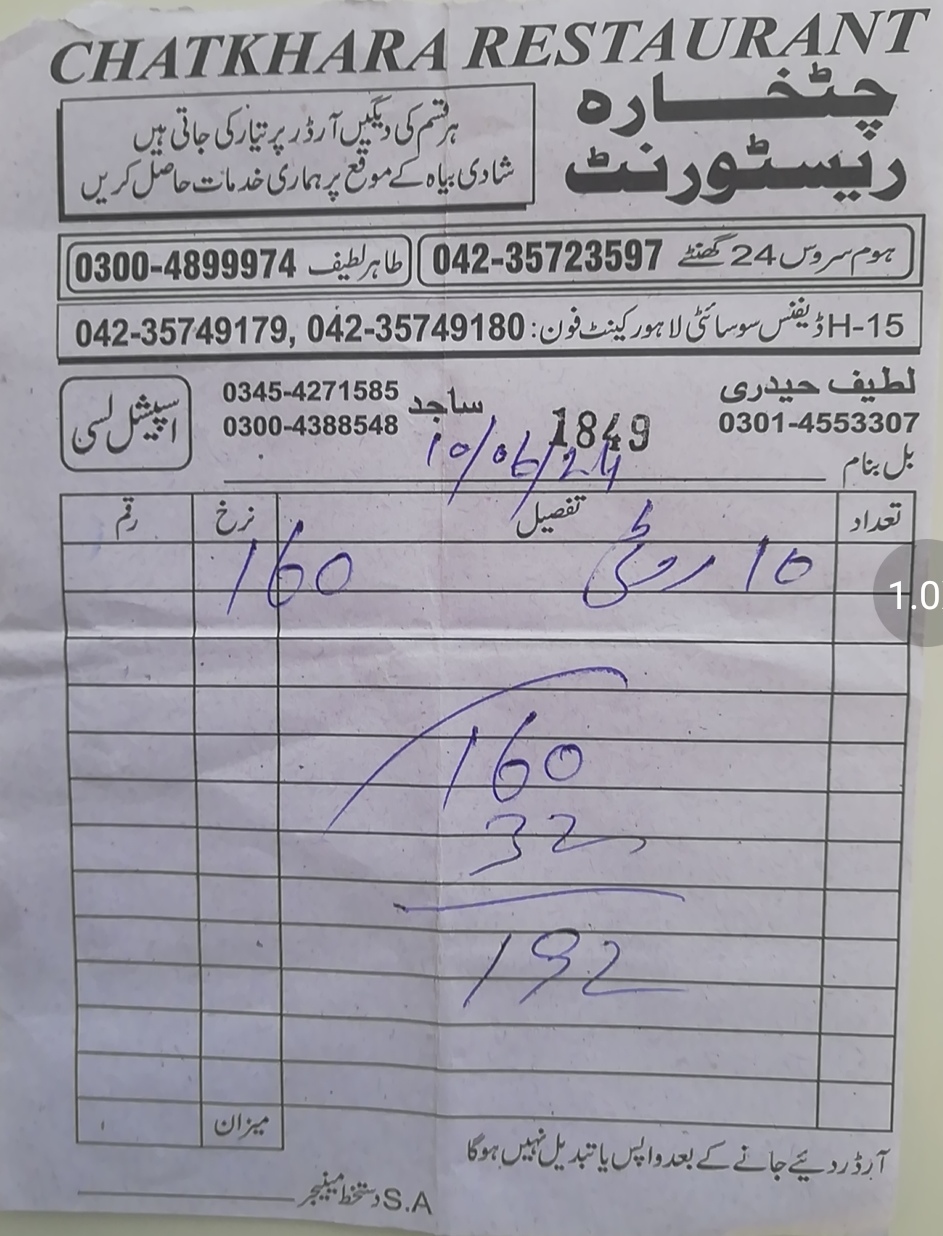 CHATKHARA RESTAURANT
چٹخارہ
ریسٹورنٹ
ہر قسم کی دیگیں آرڈر پر تیار کی جاتی ہیں
شادی بیاہ کے موقع پر ہماری خدمات حاصل کریں
ہوم سروس 24 گھنٹے 042-35723597
طاہر لطیف 0300-4899974
H-15 ڈیفنس سوسائٹی لاہور کینٹ فون: 042-35749179, 042-35749180
لطیف حیدری
0301-4553307
ساجد 0345-4271585
0300-4388548
اسپیشل لسی
1849
10/06/24
بل بنام
تعداد تفصیل نرخ رقم
10 روٹی 160
160
32
192
میزان
آرڈر دیئے جانے کے بعد واپس یا تبدیل نہیں ہوگا
S.A دستخط مینیجر
1.0